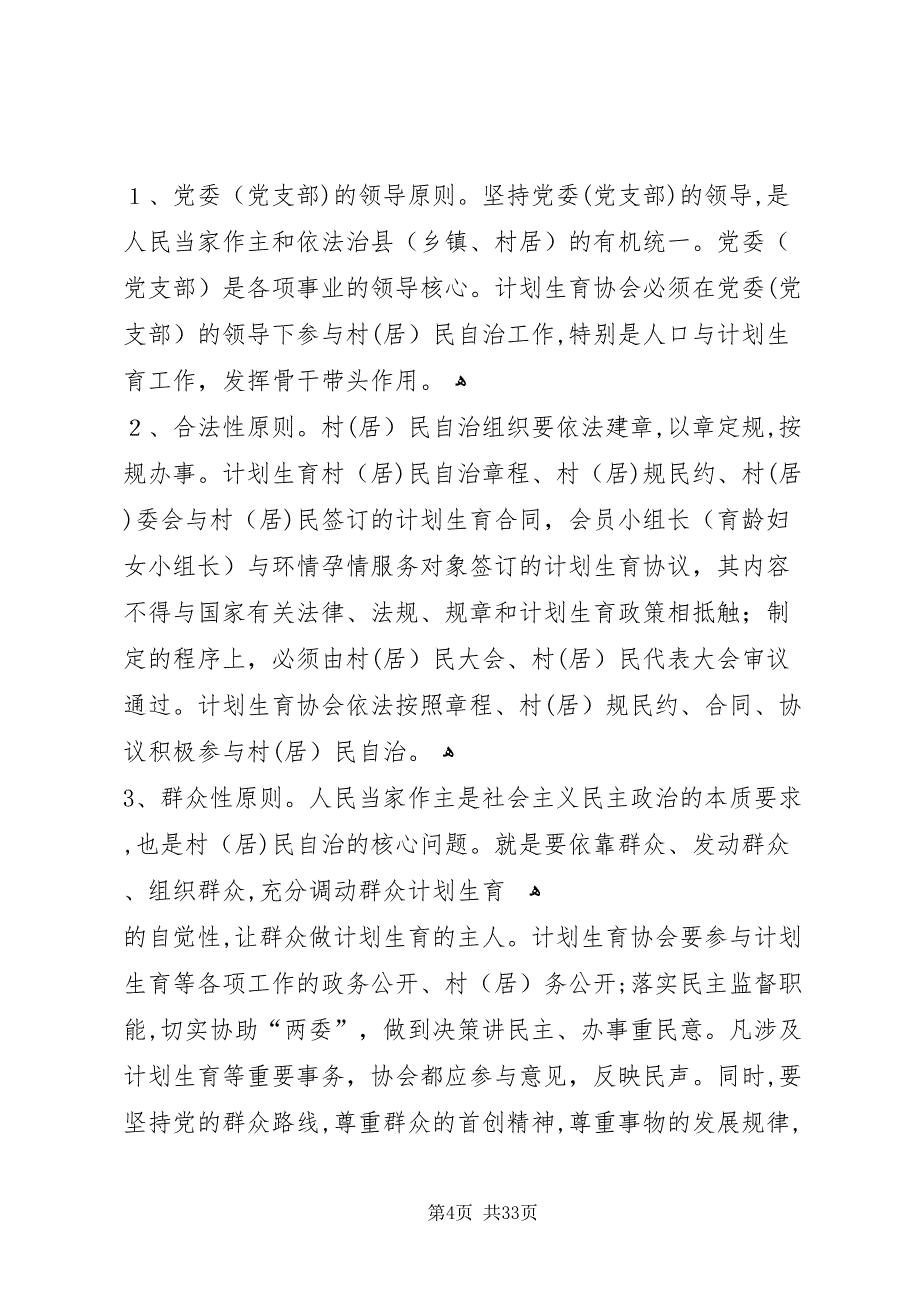 １、党委（党支部)的领导原则。坚持党委(党支部)的领导,是
人民当家作主和依法治县（乡镇、村居）的有机统一。党委（
党支部）是各项事业的领导核心。计划生育协会必须在党委(党
支部）的领导下参与村(居）民自治工作,特别是人口与计划生
育工作，发挥骨干带头作用。ﻫ
２、合法性原则。村(居）民自治组织要依法建章,以章定规,按
规办事。计划生育村（居)民自治章程、村（居)规民约、村(居
)委会与村（居)民签订的计划生育合同，会员小组长（育龄妇
女小组长）与环情孕情服务对象签订的计划生育协议，其内容
不得与国家有关法律、法规、规章和计划生育政策相抵触；制
定的程序上，必须由村(居）民大会、村(居）民代表大会审议
通过。计划生育协会依法按照章程、村(居）规民约、合同、协
议积极参与村(居）民自治。ﻫ
3、群众性原则。人民当家作主是社会主义民主政治的本质要求
,也是村（居)民自治的核心问题。就是要依靠群众、发动群众
、组织群众,充分调动群众计划生育 ﻫ
的自觉性,让群众做计划生育的主人。计划生育协会要参与计划
生育等各项工作的政务公开、村（居）务公开;落实民主监督职
能,切实协助“两委”，做到决策讲民主、办事重民意。凡涉及
计划生育等重要事务，协会都应参与意见，反映民声。同时,要
坚持党的群众路线,尊重群众的首创精神,尊重事物的发展规律,
第4页 共33页